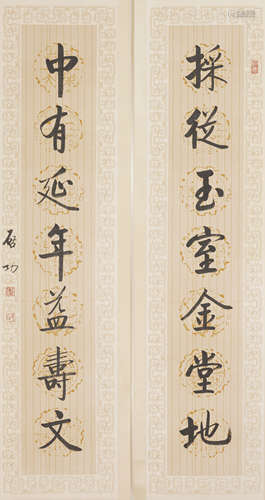 採從玉室金堂地
中有延年益壽文
啓功